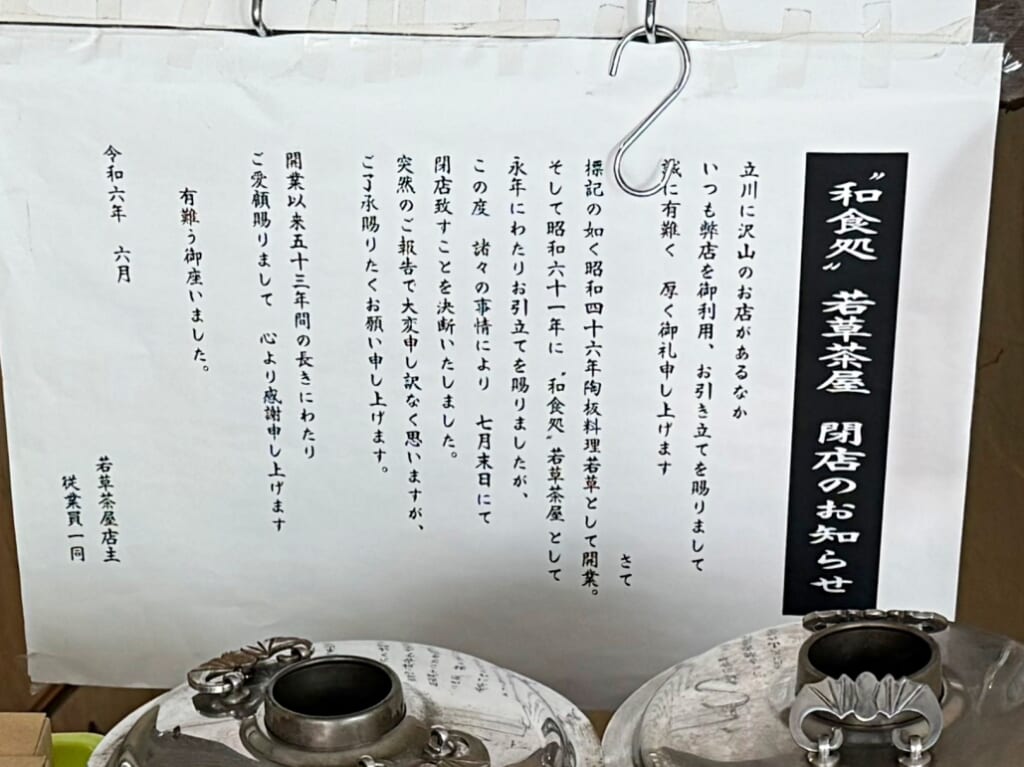 〝和食処〟若草茶屋 閉店のお知らせ
立川に沢山のお店があるなか
いつも弊店を御利用、お引き立てを賜りまして
誠に有難く 厚く御礼申し上げます
さて
標記の如く昭和四十六年陶板料理若草として開業。
そして昭和六十一年に〝和食処〟若草茶屋として
永年にわたりお引立てを賜りましたが、
この度 諸々の事情により 七月末日にて
閉店致すことを決断いたしました。
突然のご報告で大変申し訳なく思いますが、
ご了承賜りたくお願い申し上げます。
開業以来五十三年間の長きにわたり
ご愛顧賜りまして 心より感謝申し上げます
有難う御座いました。
令和六年 六月
若草茶屋店主
従業員一同